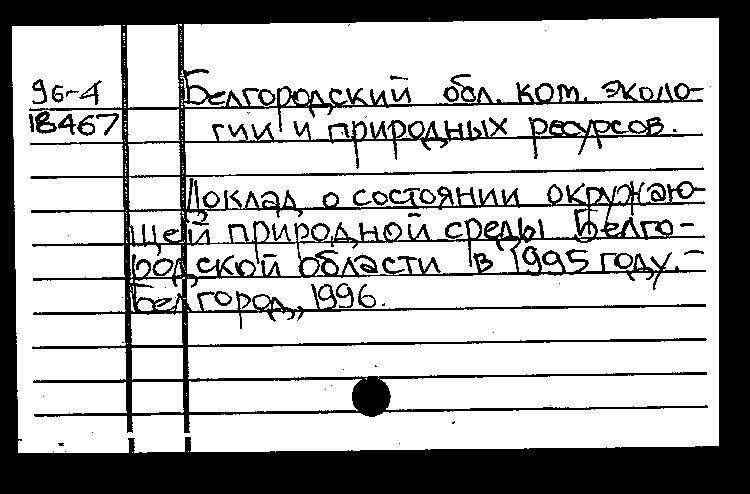 96-4 Белгородский обл. ком. эколо-
18467 гии и природных ресурсов.
Доклад о состоянии окружаю-
щей природной среды Белго-
родской области в 1995 году.-
Белгород, 1996.